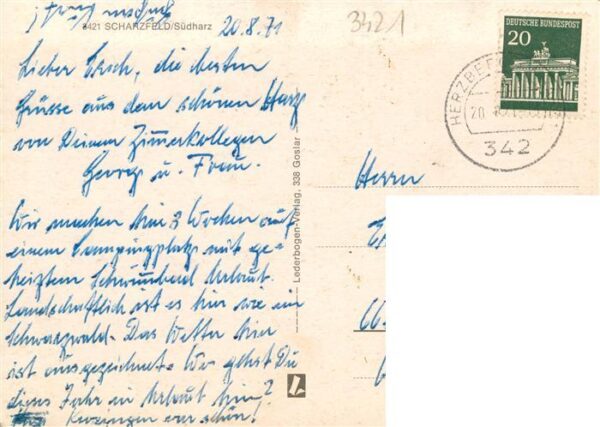 3421 SCHARZFELD/Südharz
20.8.71
3421
Lieber Erich, die besten
Grüsse aus dem schönen Harz
von Deinem Zimmerkollegen
Georg u. Frau.
Wir machen hier 3 Wochen auf
einem Campingplatz mit ge-
heiztem Schwimmbad Urlaub.
Landschaftlich ist es hier wie im
Schwarzwald. Das Wetter hier
ist ausgezeichnet. Wo gehst Du
dieses Jahr in Urlaub hin?
Kissingen war schön!
Lederbogen-Verlag, 338 Goslar
DEUTSCHE BUNDESPOST
20
HERZBERG
20
342
Herrn
66